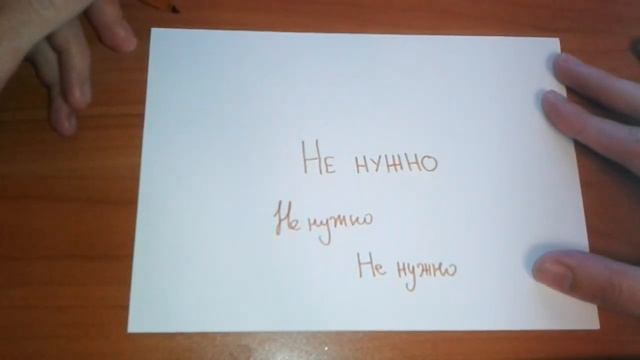 Не нужно
Не нужно
Не нужно